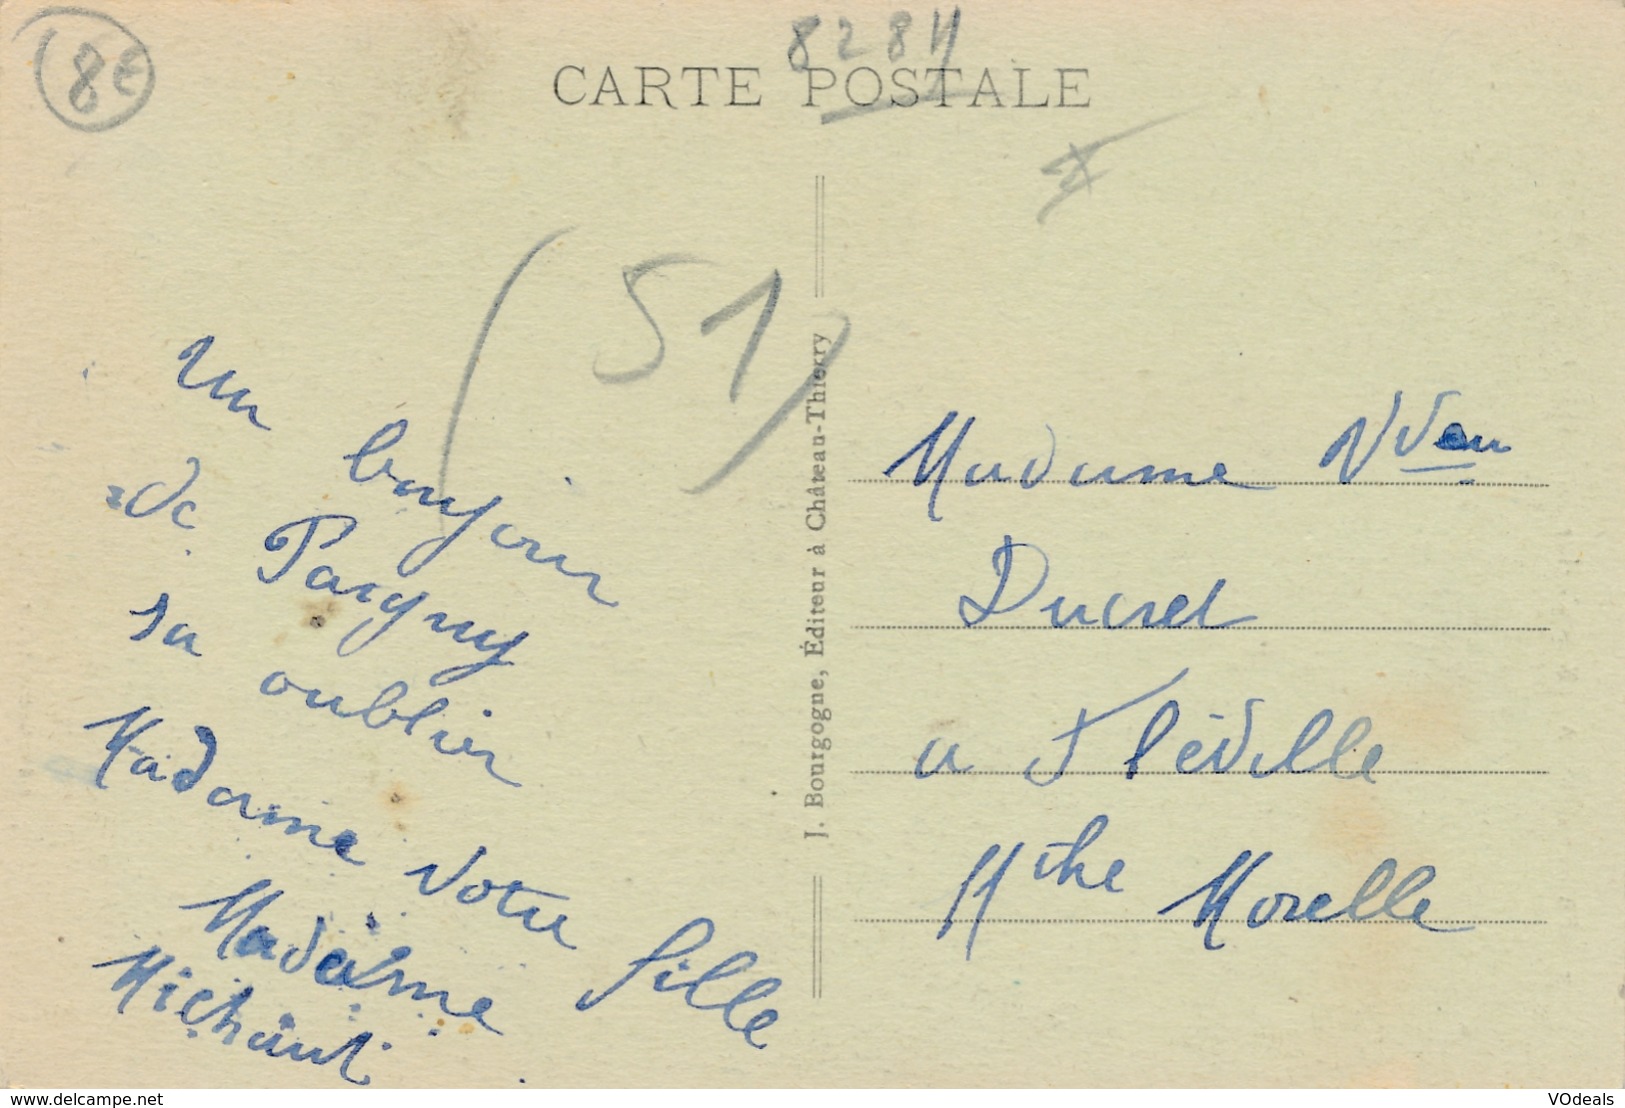 8€
8284
CARTE POSTALE
(51)
Un bonjour
de Pargny
sa oublier
Madame Votre fille
Madame
Michaut
J. Bourgogne, Éditeur à Château-Thierry
Madame Vve
Ducret
a Fléville
Mthe Morelle
delcampe.net
VOdeals